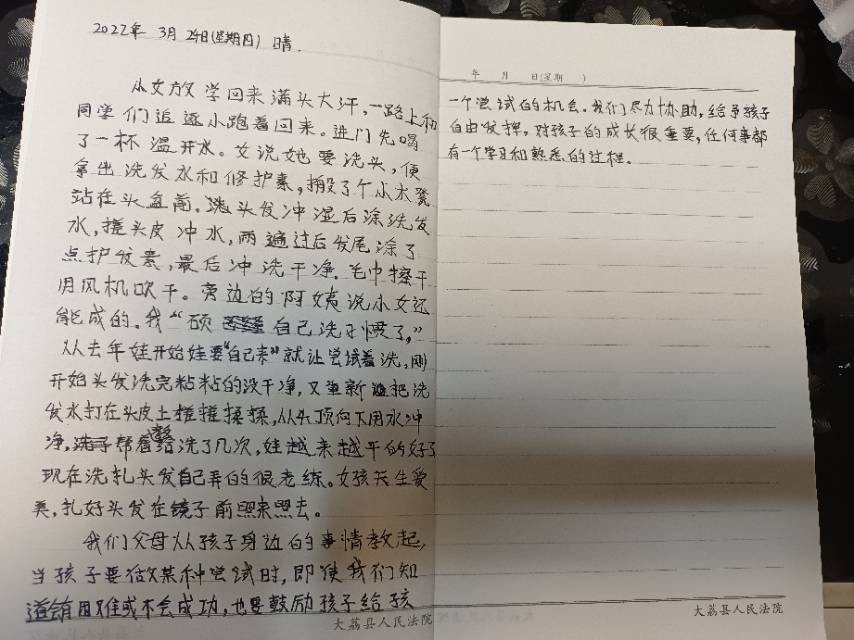 2022年 3月 24日(星期四) 晴.
小女放学回来满头大汗,一路上和
同学们追逐小跑着回来。进门先喝
了一杯温开水。女说她要洗头,便
拿出洗发水和修护素,搬了个小木凳
站在头盆前。头发冲湿后涂洗发
水,搓头皮冲水,两遍过后发尾涂了
点护发素,最后冲洗干净.毛巾擦干
用风机吹干。旁边的阿姨说小女还
能成的。我“硕 自己洗习惯了。”
从去年娃开始娃要“自己来”就让尝试着洗,刚
开始头发洗完粘粘的没干净,又重新把洗
发水打在头皮上搓搓揉揉,从头顶向下用水冲
净,帮着给洗了几次,娃越来越干的好了
现在洗扎头发自己弄的很老练。女孩天生爱
美,扎好头发在镜子前照来照去。
我们父母从孩子身边的事情教起,
当孩子要做某种尝试时,即使我们知
道会有困难或不会成功,也要鼓励孩子给孩
大荔县人民法院
年 月 日(星期 )
一个尝试的机会.我们尽力协助,给予孩子
自由发挥,对孩子的成长很重要,任何事都
有一个学习和熟悉的过程.
大荔县人民法院